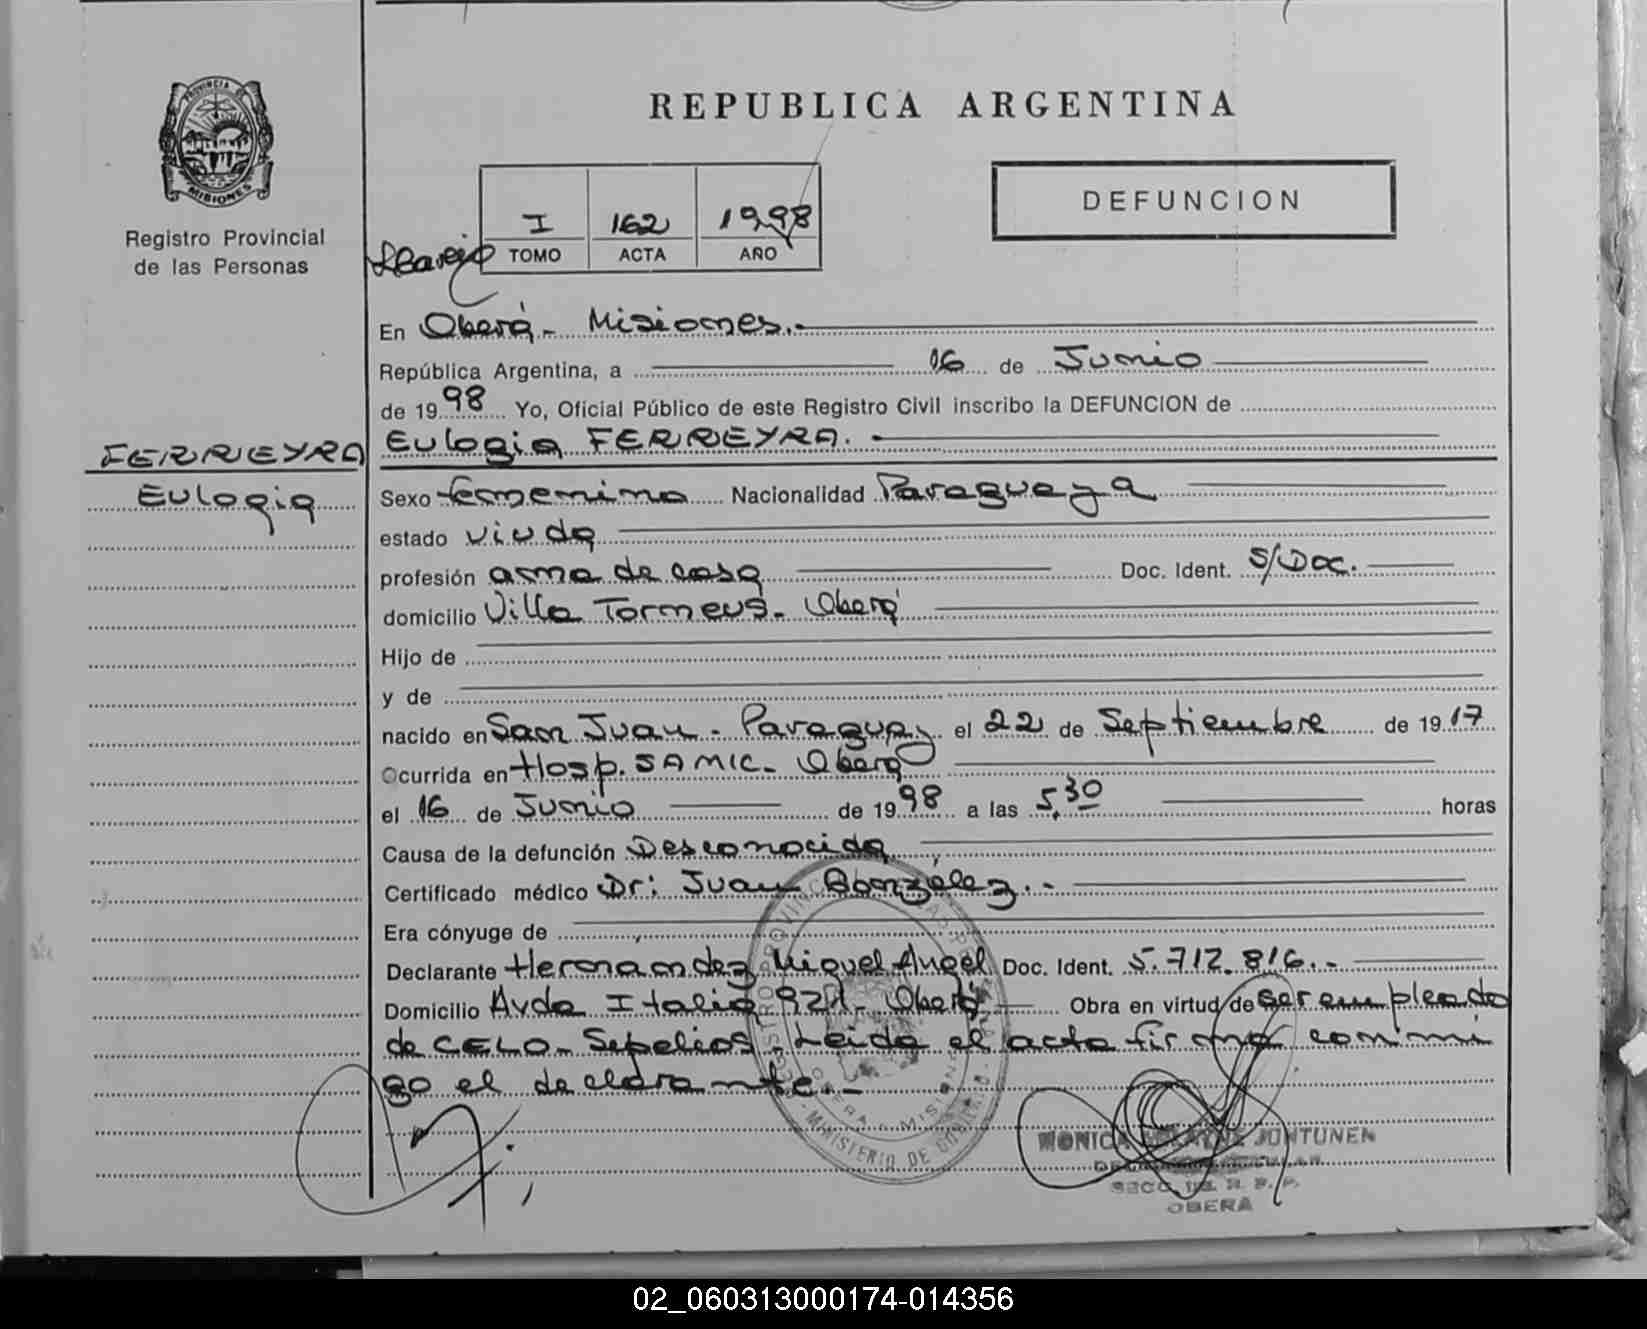 REPUBLICA ARGENTINA
PROVINCIA DE
MISIONES
Registro Provincial
de las Personas
I 162 1998
TOMO ACTA AÑO
DEFUNCION
En Oberá - Misiones.-
República Argentina, a 16 de Junio
de 1998 Yo, Oficial Público de este Registro Civil inscribo la DEFUNCION de
FERREYRA
Eulogia
Eulogia FERREYRA.
Sexo femenino Nacionalidad Paraguaya
estado viuda
profesión ama de casa Doc. Ident. S/Doc.
domicilio Villa Torneus - Oberá
Hijo de
y de
nacido en San Juan - Paraguay el 22 de Septiembre de 1917
Ocurrida en Hosp. SAMIC - Oberá
el 16 de Junio de 1998 a las 5,30 horas
Causa de la defunción Desconocida
Certificado médico Dr: Juan Gonzalez.-
Era cónyuge de
Declarante Hernandez Miguel Angel Doc. Ident. 5.712.816.-
Domicilio Avda Italia Oberá Obra en virtud de ser empleado
de CELO - Sepelios. Leida el acta firma conmi
go el declarante.-
MINISTERIO DE GOBIERNO
OBERA - MISIONES
MONICA JUNTUNEN
SECC. R. P. P.
OBERA
02_060313000174-014356